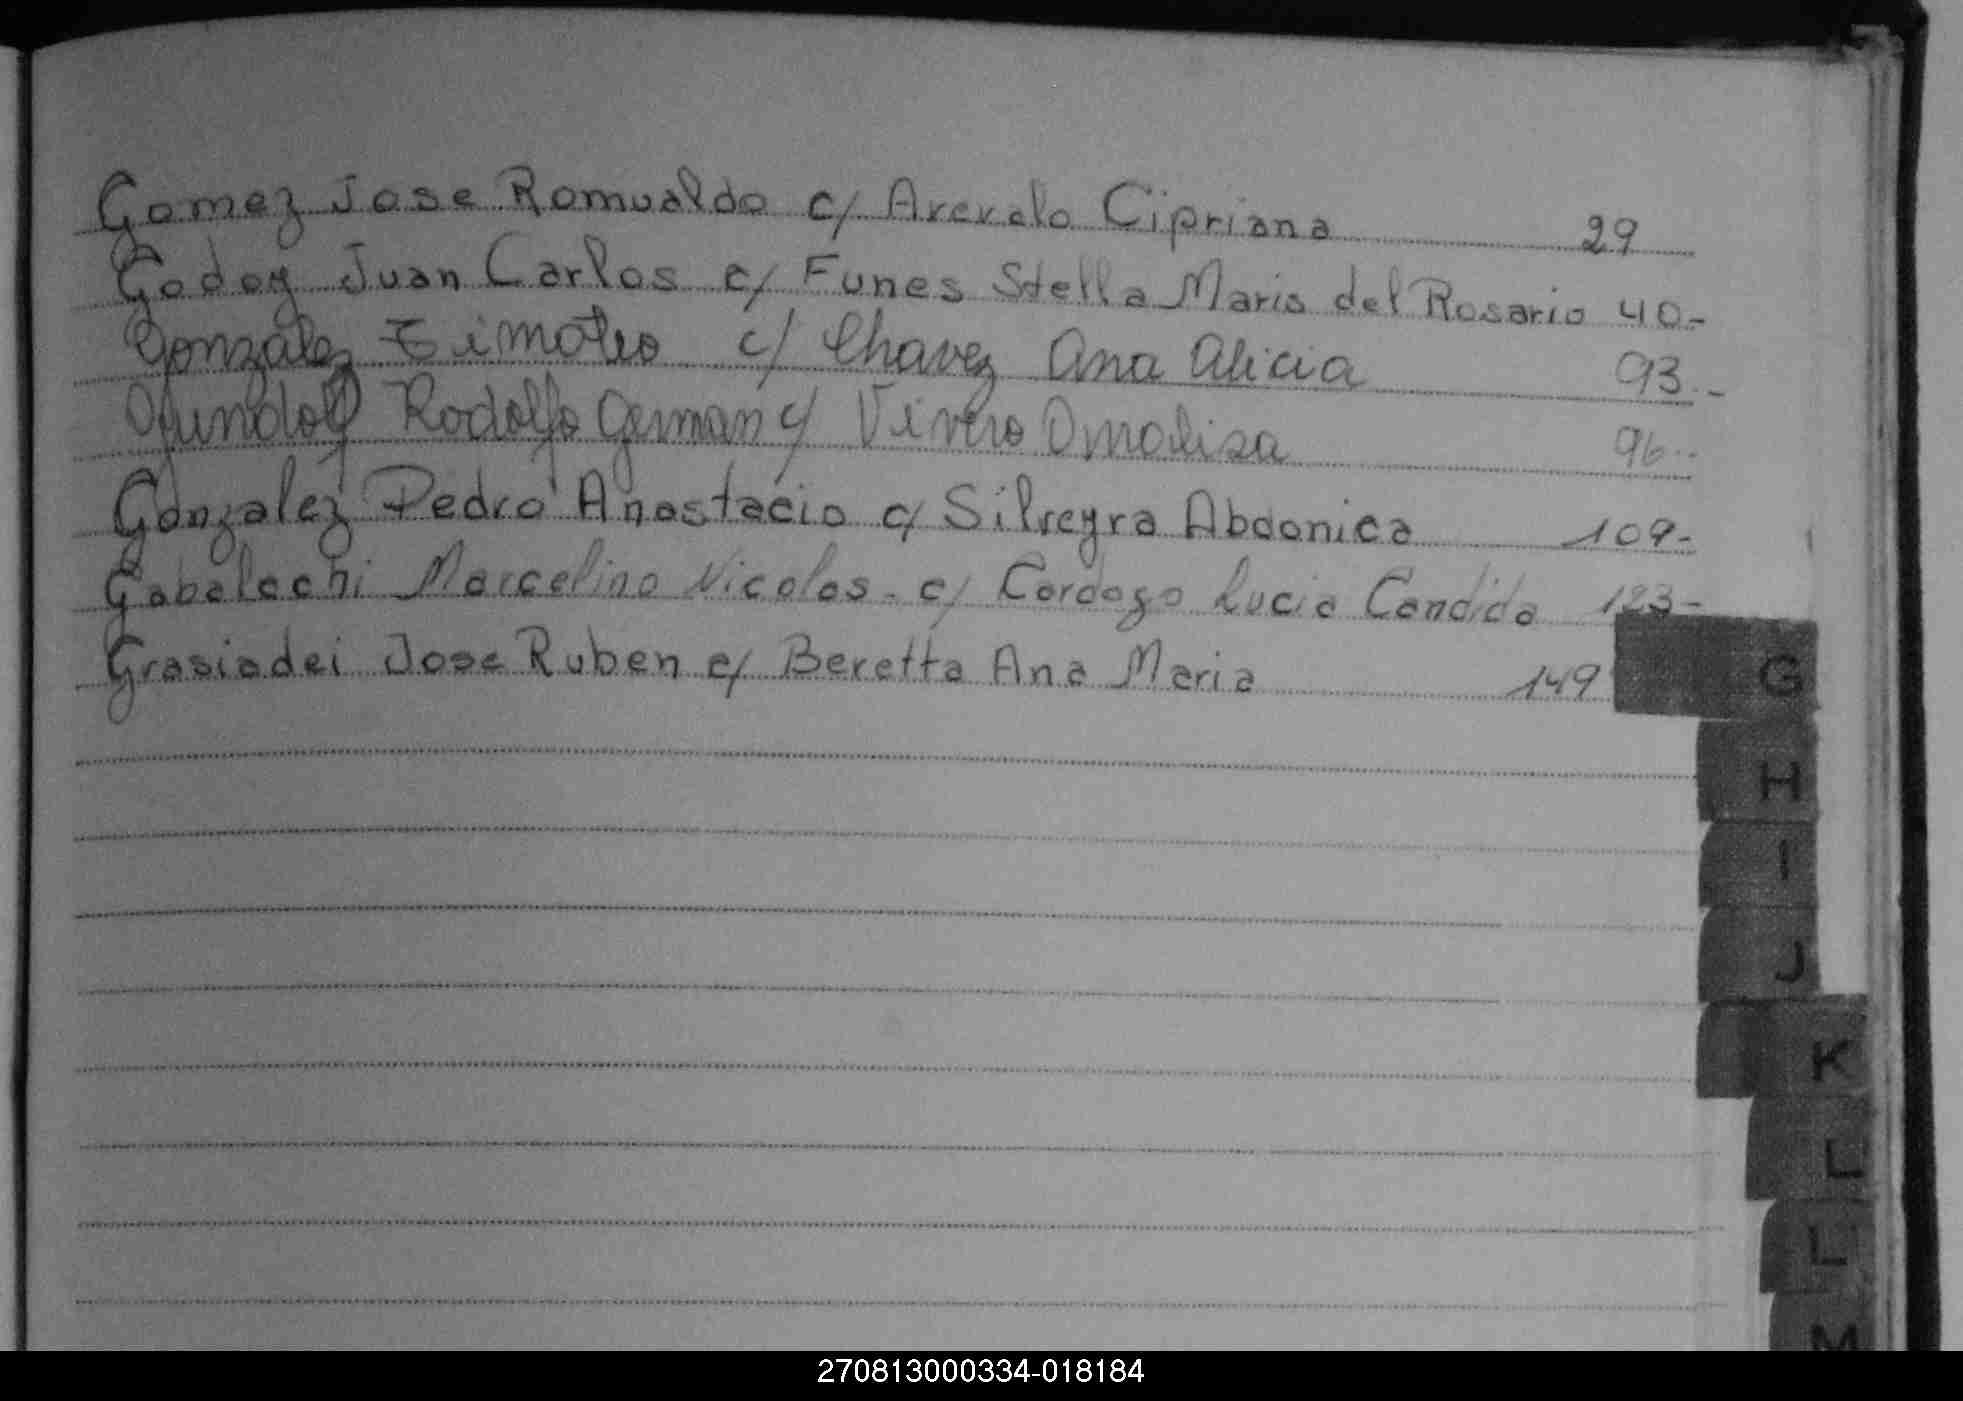 Gomez Jose Romualdo c/ Arevalo Cipriana 29
Godoy Juan Carlos c/ Funes Stella Maris del Rosario 40-
Gonzalez Timoteo c/ Chavez Ana Alicia 93.-
Rodolfo German c/ Vivero 96..
Gonzalez Pedro Anastacio c/ Silveyra Abdonica 109-
Gabelechi Marcelino Nicolas - c/ Cardozo Lucia Candida 123-
Grasiadei Jose Ruben c/ Beretta Ana Maria 149
G
H
I
J
K
L
L
M
270813000334-018184